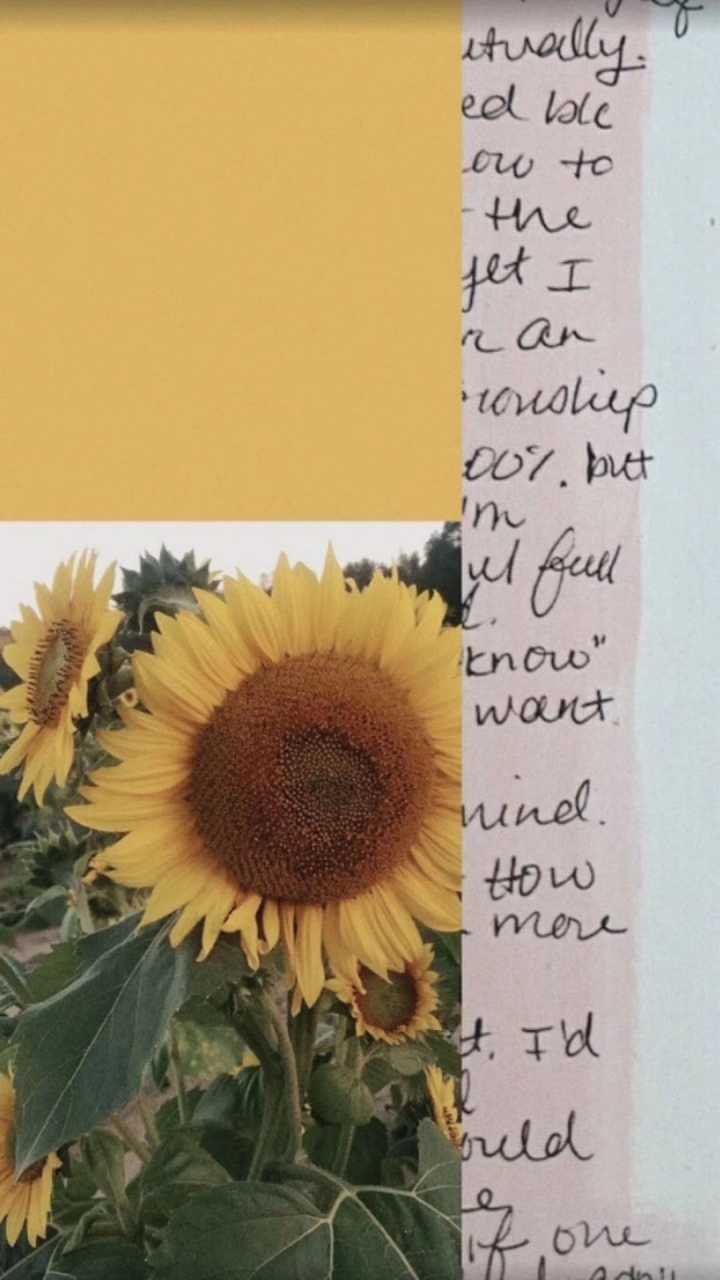 utually.
ed b/c
ow to
the
yet I
r an
ionship
00%. but
I'm
ul full
t.
know"
want.
mind.
How
more
t. I'd
ould
e
if one